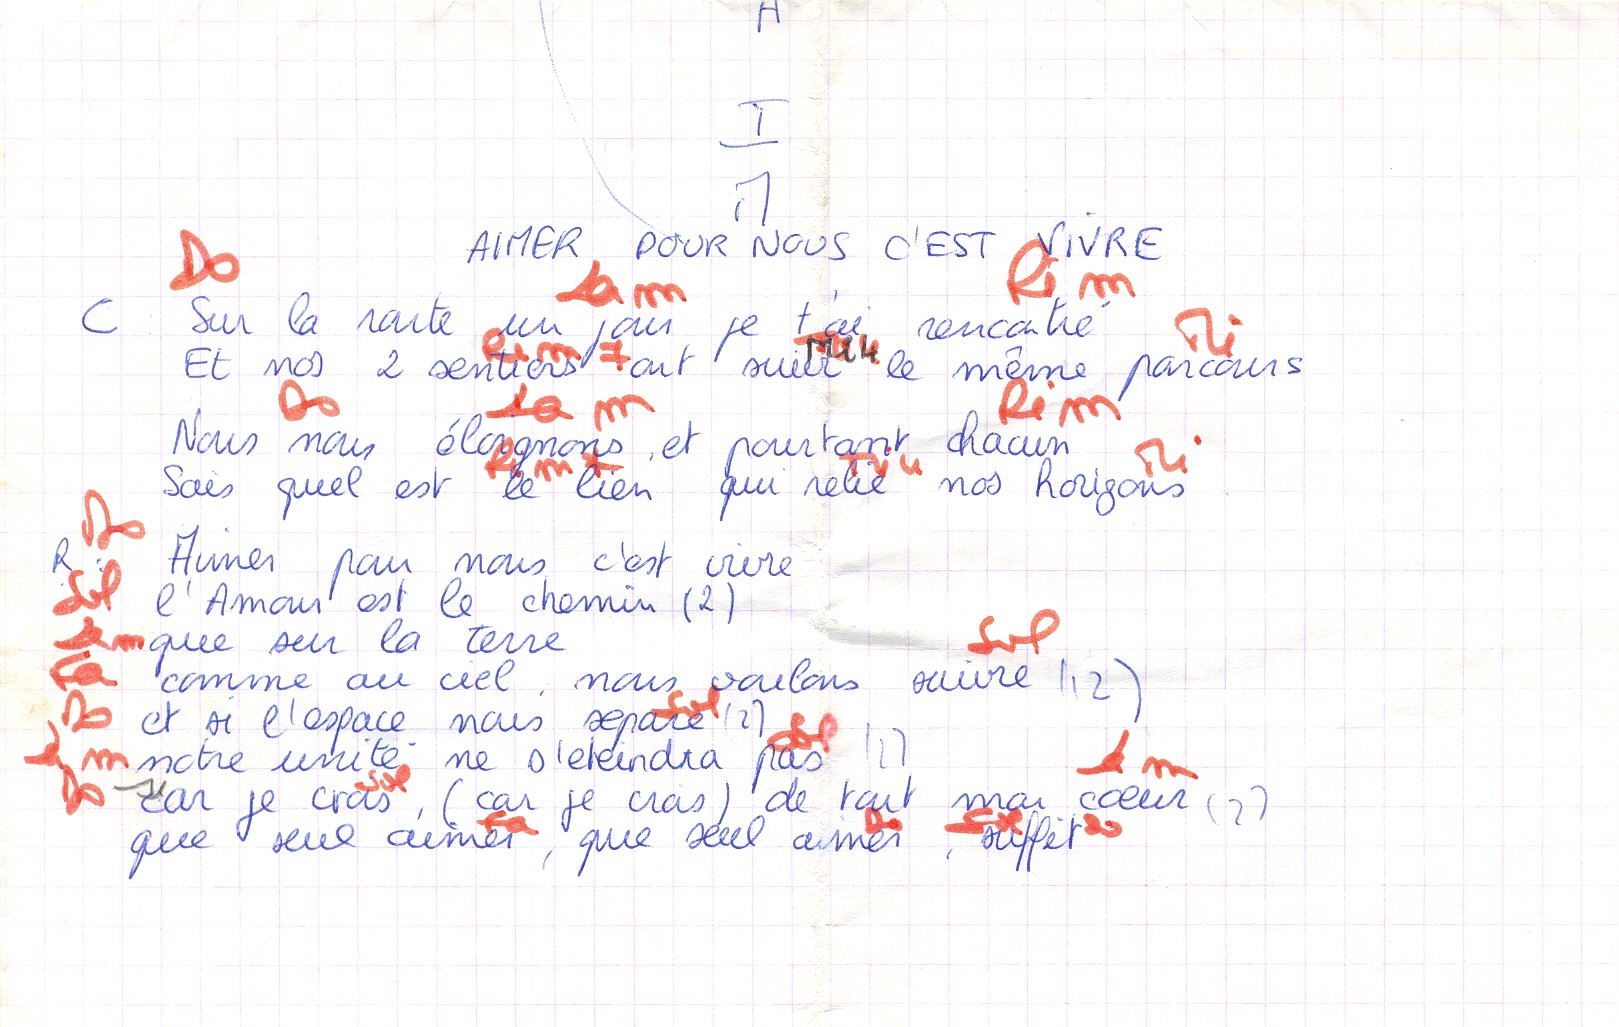 A
I
M
AIMER POUR NOUS C'EST VIVRE
Do Lam Rém
C : Sur la route un jour je t'ai rencontré
Rém7 Mi4 Mi
Et nos 2 sentiers ont suivi le même parcours
Do Lam Rém
Nous nous éloignons, et pourtant chacun
Rém7 Mi4 Mi
Sais quel est le lien qui relie nos horizons
Do
R : Aimer pour nous c'est vivre
Sol l'Amour est le chemin (2)
Lam que sur la terre
Sol
Fa comme au ciel, nous voulons suivre (2)
Sol
Do et si l'espace nous sépare (2)
Sol
Lam notre unité ne s'éteindra pas (2)
Sol Lam
Do car je crois, (car je crois) de tout mon coeur (2)
Fa Do Sol Do
que seul aimer, que seul aimer, suffit